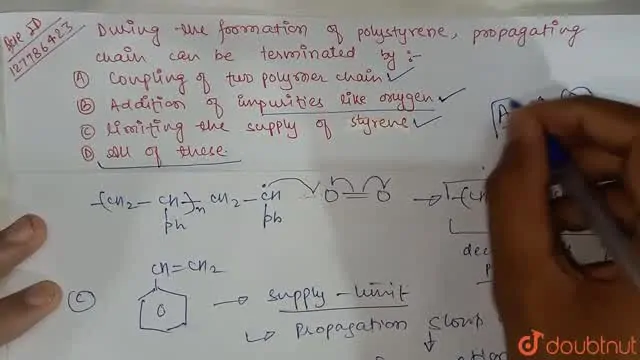 Que ID
127786423
During the formation of polystyrene, propagating
chain can be terminated by :-
(A) Coupling of two polymer chain ✓
(B) Addition of impurities like oxygen ✓
(C) limiting the supply of styrene ✓
(D) All of these
A
-(CH2 - CH)n - CH2 - ĊH O = O → -(CH
Ph Ph
CH=CH2
(C) → Supply - limit
Propagation slow
doubtnut